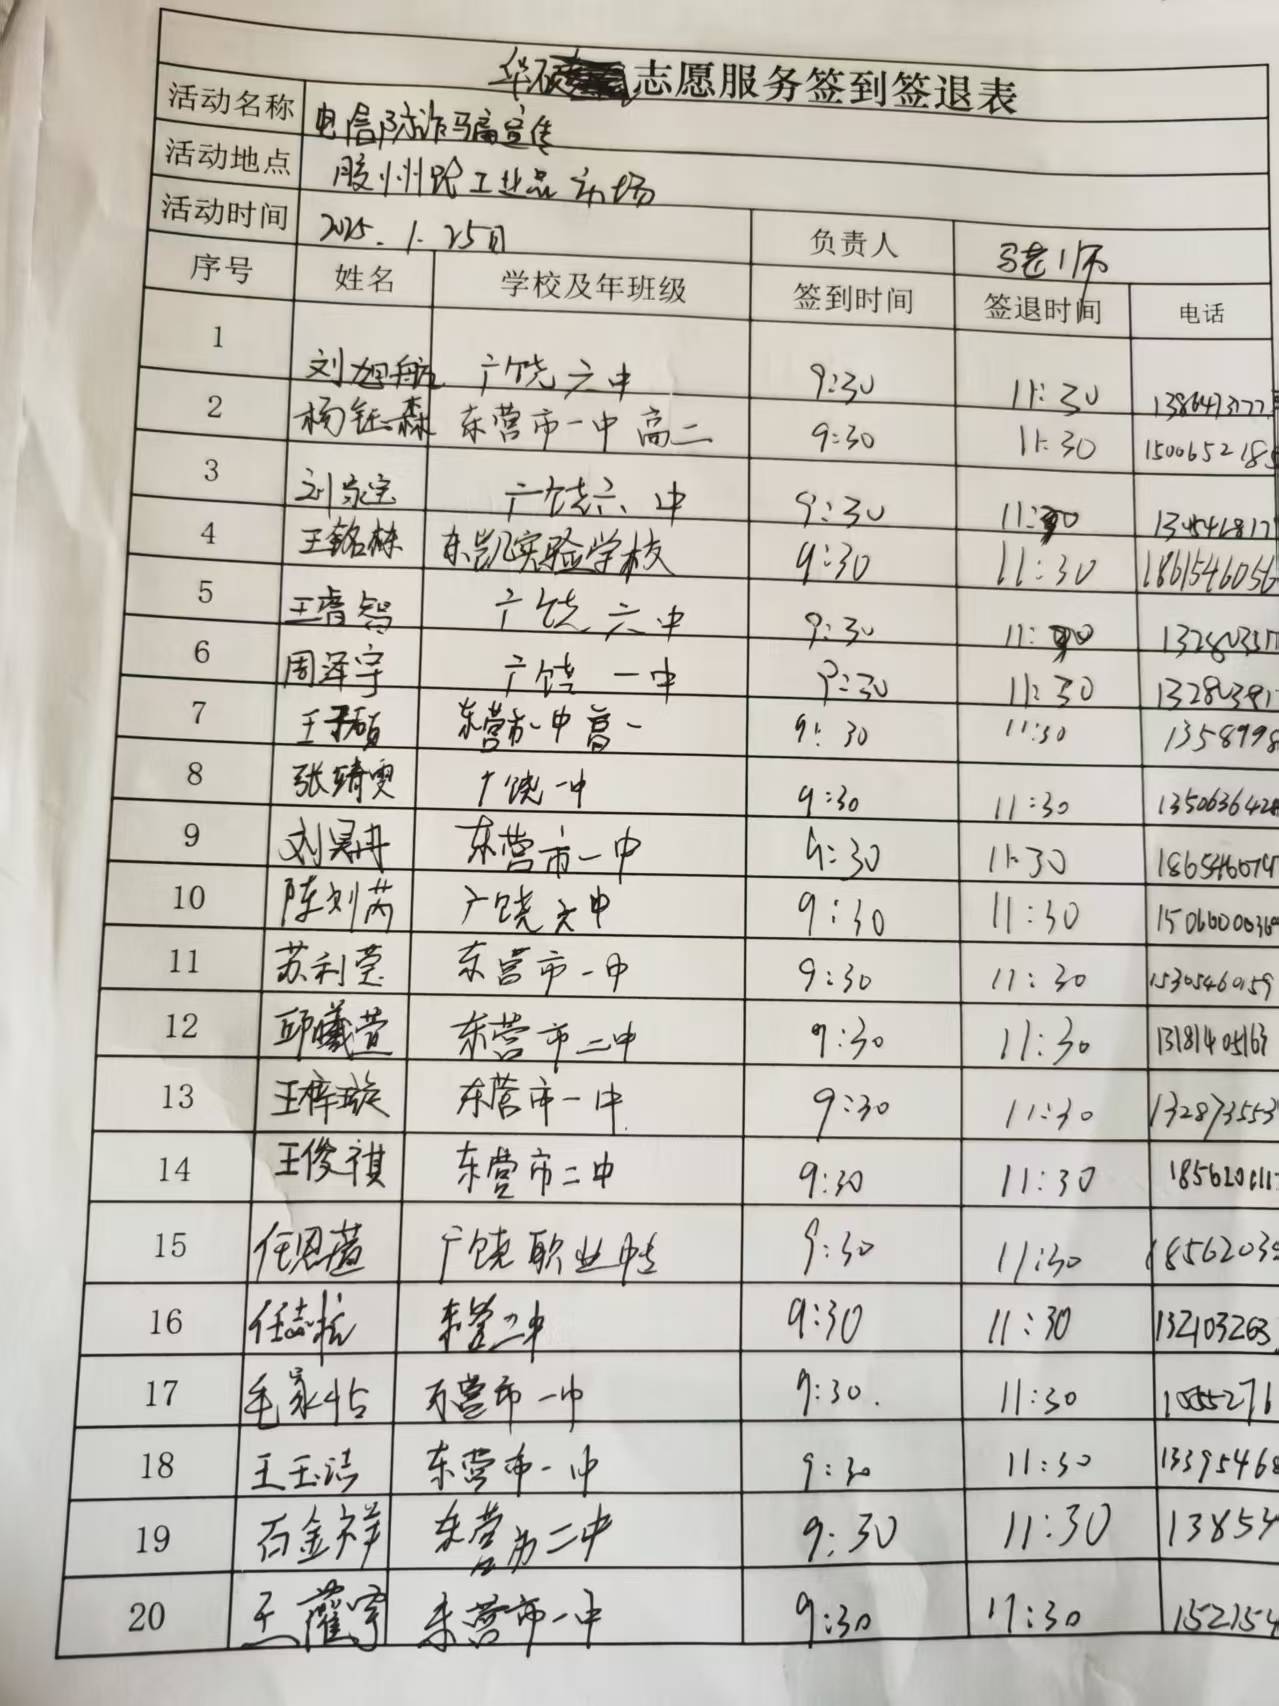 志愿服务签到签退表
活动名称 电信防诈骗宣传
活动地点 胶州路工业品市场
活动时间 2025.1.25日 负责人 马老师
序号 姓名 学校及年班级 签到时间 签退时间 电话
1 刘旭航 广饶六中 9:30 11:30
2 杨钰森 东营市一中高二 9:30 11:30 1500652185
3 刘家宝 广饶六中 9:30 11:30
4 王铭栋 东凯实验学校 9:30 11:30 1861546056
5 王睿智 广饶六中 9:30 11:30
6 周泽宇 广饶一中 9:30 11:30
7 王子硕 东营市一中高一 9:30 11:30 1358998
8 张靖雯 广饶一中 9:30 11:30 1350636428
9 刘昊冉 东营市一中 9:30 11:30
10 陈刘芮 广饶六中 9:30 11:30
11 苏利莹 东营市一中 9:30 11:30 15305460159
12 邱曦萱 东营市二中 9:30 11:30 13181405163
13 王梓璇 东营市一中 9:30 11:30 132873553
14 王俊祺 东营市二中 9:30 11:30
15 任恩萱 广饶职业中专 9:30 11:30 1856203
16 任志 东营二中 9:30 11:30 132103263
17 毛家怡 东营市一中 9:30. 11:30
18 王玉洁 东营市一中 9:30 11:30 13395468
19 石金祥 东营市二中 9:30 11:30 13854
20 王 宇 东营市一中 9:30 11:30 152154